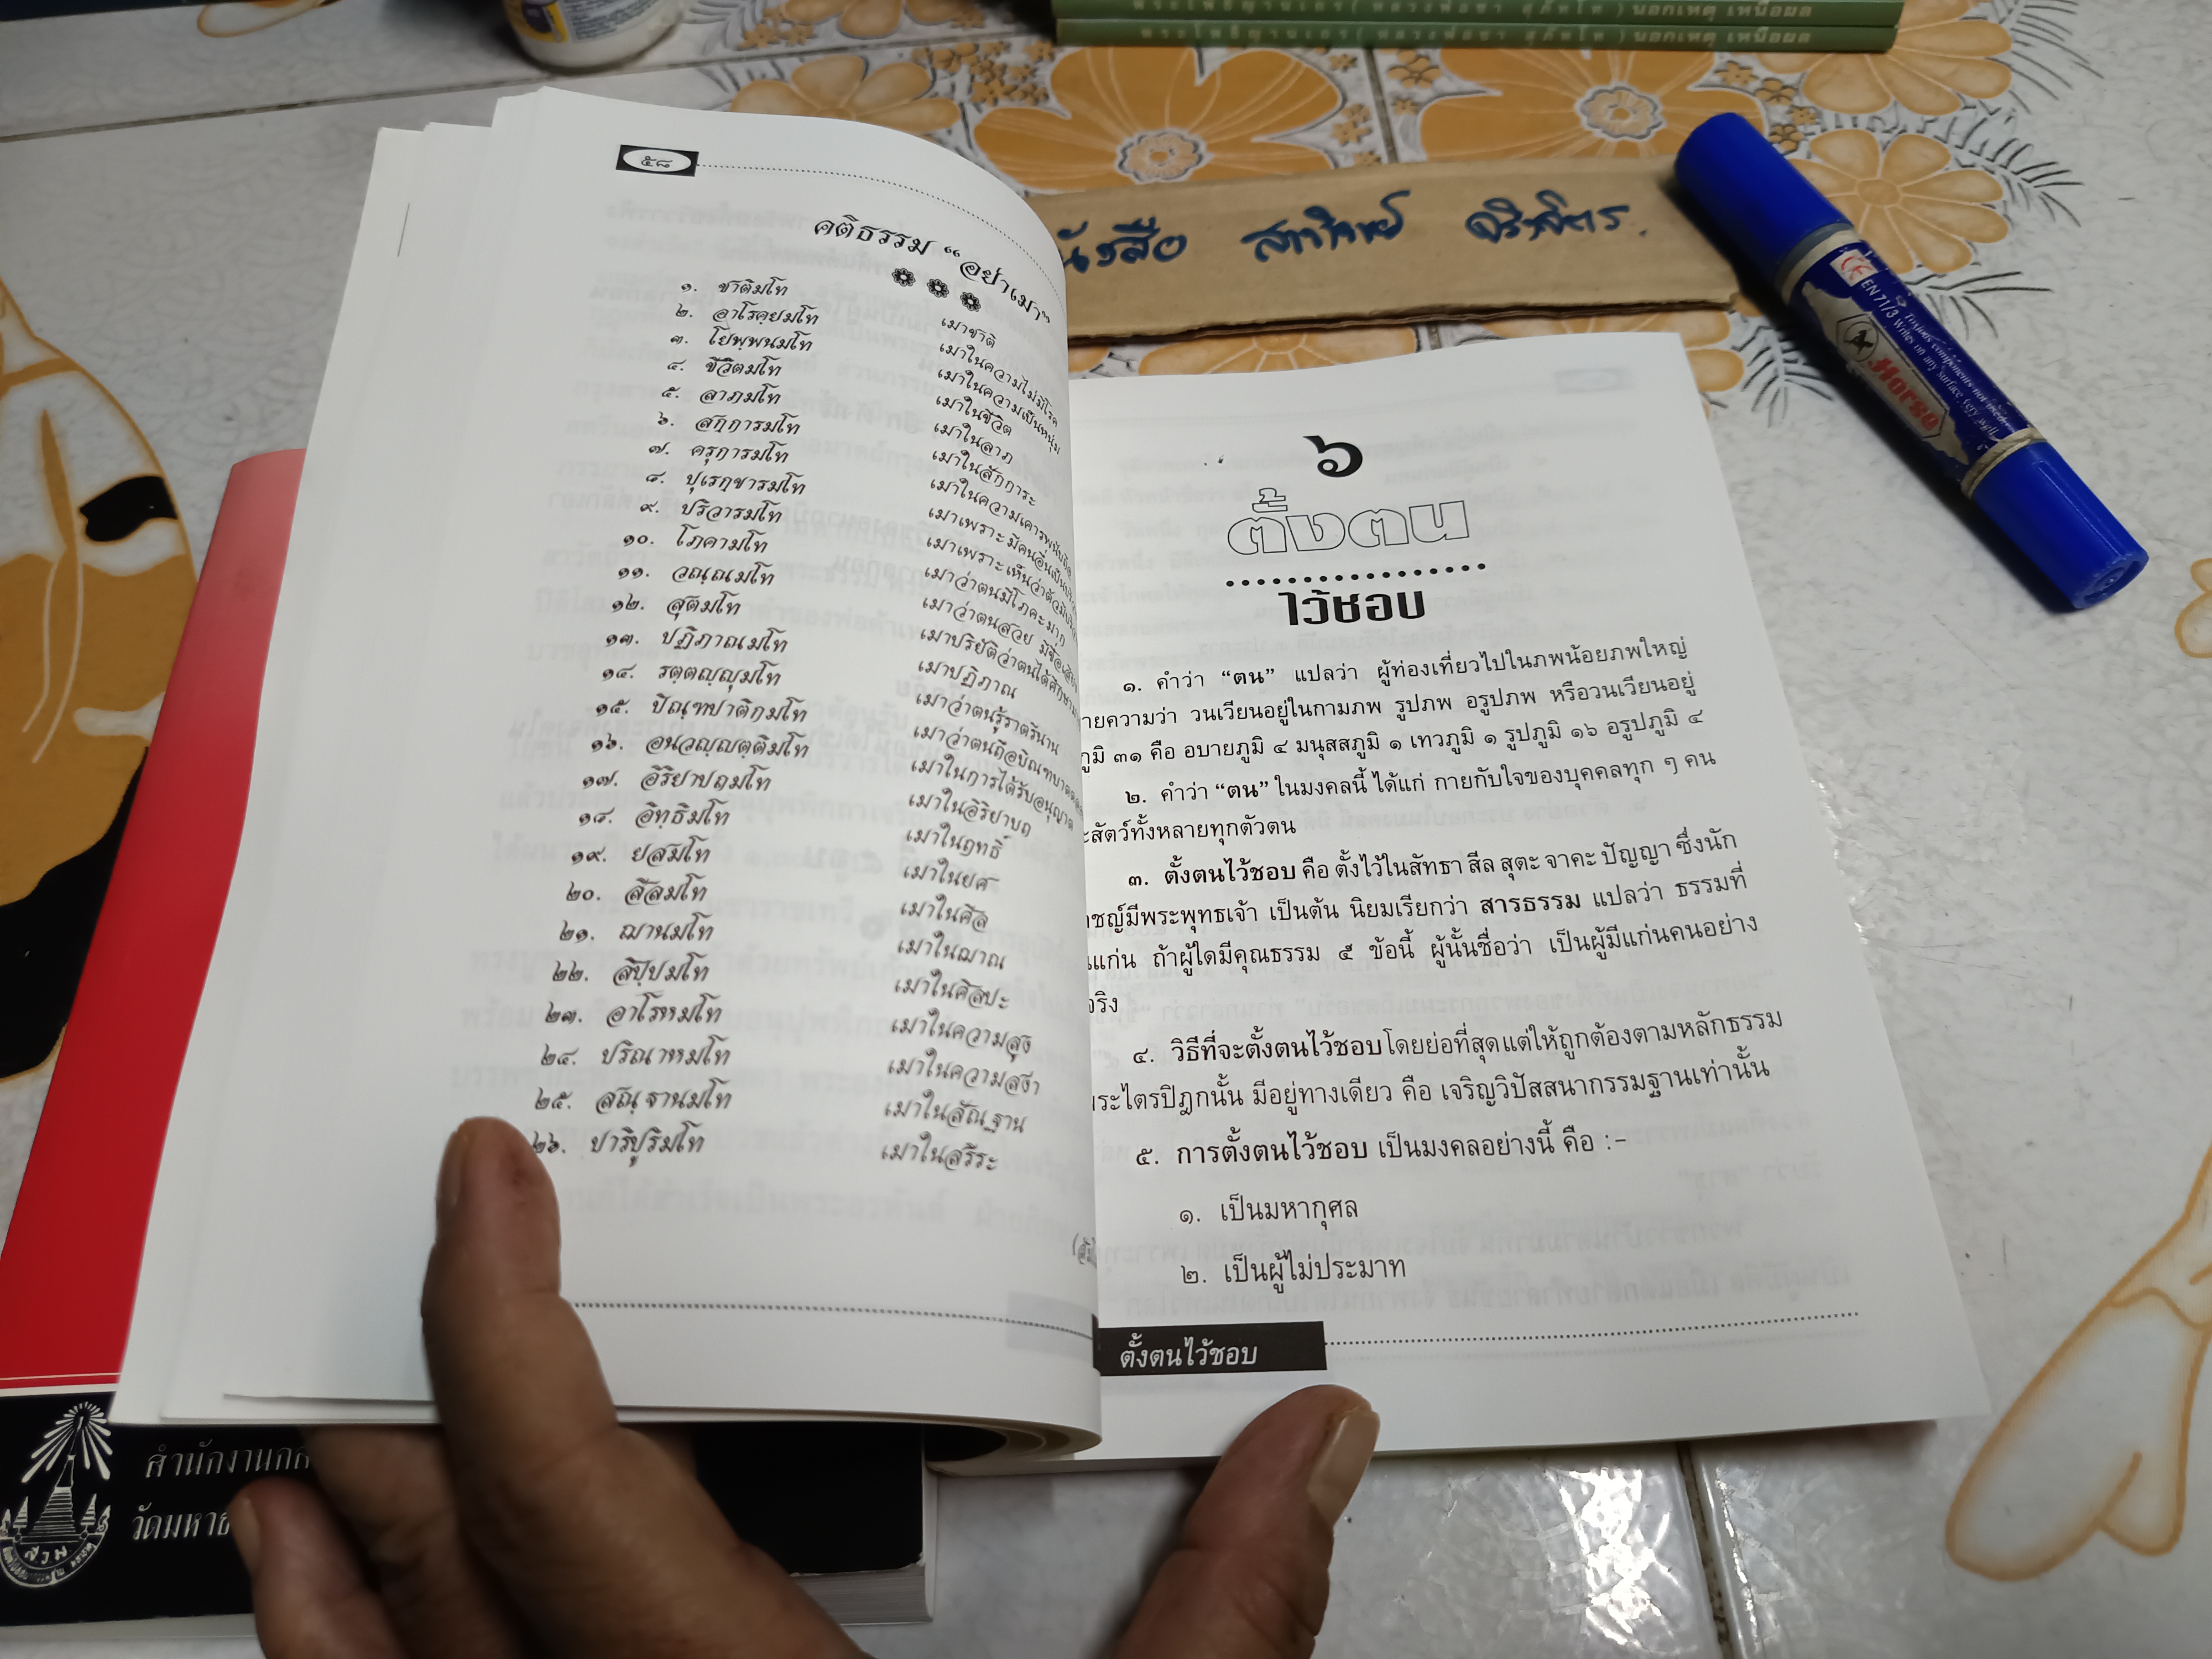 พระโพธิญาณเถร ( หลวงพ่อชา สุภัทโท ) นอกเหตุ เหนือผล
พระโพธิญาณเถร ( หลวงพ่อชา สุภัทโท ) นอกเหตุ เหนือผล
หนังสือ
Horse
EN 71/3
๕๘
คติธรรม “อย่าเมา”
๑. ชาติมโท เมาชาติ
๒. อาโรคฺยมโท เมาในความไม่มีโรค
๓. โยพฺพนมโท เมาในความเป็นหนุ่ม
๔. ชีวิตมโท เมาในชีวิต
๕. ลาภมโท เมาในลาภ
๖. สกฺการมโท เมาในสักการะ
๗. ครุการมโท เมาในความเคารพนับถือ
๘. ปุเรกฺขารมโท เมาเพราะมีคนอื่นเป็น
๙. ปริวารมโท เมาเพราะเห็นว่าตัวมี
๑๐. โภคามโท เมาว่าตนมีโภคะมาก
๑๑. วณฺณมโท เมาว่าตนสวย มีชื่อเสียง
๑๒. สุตมโท เมาปริยัติว่าตนได้ศึกษามา
๑๓. ปฏิภาณมโท เมาปฏิภาณ
๑๔. รตฺตญฺญุมโท เมาว่าตนรู้ราตรีนาน
๑๕. ปิณฺฑปาติกมโท เมาว่าตนถือบิณฑบาต
๑๖. อนวญฺญตฺติมโท เมาในการได้รับอนุญาต
๑๗. อิริยาปถมโท เมาในอิริยาบถ
๑๘. อิทฺธิมโท เมาในฤทธิ์
๑๙. ยสมโท เมาในยศ
๒๐. สีลมโท เมาในศีล
๒๑. ฌานมโท เมาในฌาณ
๒๒. สิปฺปมโท เมาในศิลปะ
๒๓. อาโรหมโท เมาในความสูง
๒๔. ปริณาหมโท เมาในความสง่า
๒๕. สณฺฐานมโท เมาในสัณฐาน
๒๖. ปาริปูริมโท เมาในสรีระ
๖
ตั้งตน
ไว้ชอบ
๑. คำว่า “ตน” แปลว่า ผู้ท่องเที่ยวไปในภพน้อยภพใหญ่
ายความว่า วนเวียนอยู่ในกามภพ รูปภพ อรูปภพ หรือวนเวียนอยู่
ภูมิ ๓๑ คือ อบายภูมิ ๔ มนุสสภูมิ ๑ เทวภูมิ ๑ รูปภูมิ ๑๖ อรูปภูมิ ๔
๒. คำว่า “ตน” ในมงคลนี้ ได้แก่ กายกับใจของบุคคลทุก ๆ คน
ะสัตว์ทั้งหลายทุกตัวตน
๓. ตั้งตนไว้ชอบ คือ ตั้งไว้ในสัทธา สีล สุตะ จาคะ ปัญญา ซึ่งนัก
าชญ์มีพระพุทธเจ้า เป็นต้น นิยมเรียกว่า สารธรรม แปลว่า ธรรมที่
นแก่น ถ้าผู้ใดมีคุณธรรม ๕ ข้อนี้ ผู้นั้นชื่อว่า เป็นผู้มีแก่นคนอย่าง
จริง
๔. วิธีที่จะตั้งตนไว้ชอบโดยย่อที่สุดแต่ให้ถูกต้องตามหลักธรรม
พระไตรปิฎกนั้น มีอยู่ทางเดียว คือ เจริญวิปัสสนากรรมฐานเท่านั้น
๕. การตั้งตนไว้ชอบ เป็นมงคลอย่างนี้ คือ :-
๑. เป็นมหากุศล
๒. เป็นผู้ไม่ประมาท
ตั้งตนไว้ชอบ
สำนักงานกล
วัดมหาธ